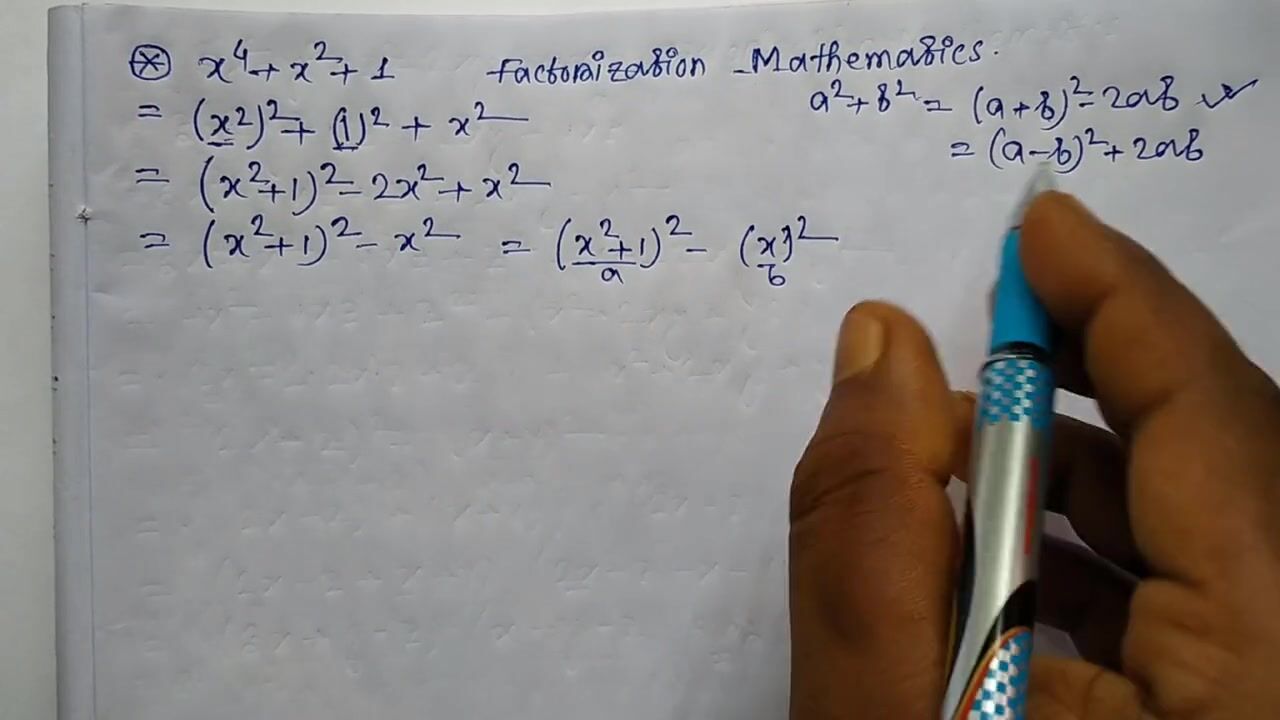 ⊛ x⁴ + x² + 1 Factorization Mathematics.
a² + b² = (a + b)² - 2ab ✓
= (x²)² + (1)² + x²
= (a - b)² + 2ab
= (x² + 1)² - 2x² + x²
= (x² + 1)² - x² = (x² + 1)² - (x)²
a b